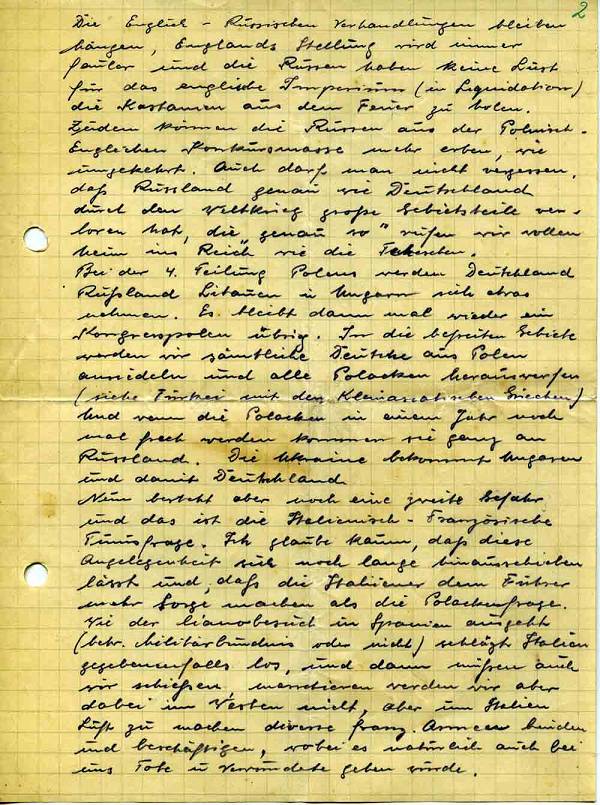 2
Die Englisch - Russischen Verhandlungen bleiben
hängen, Englands Stellung wird immer
fauler und die Russen haben keine Lust
für das englische Imperium (in Liquidation)
die Kastanien aus dem Feuer zu holen.
Zudem können die Russen aus der Polnisch-
Englichen Konkursmasse mehr erben, wie
umgekehrt. Auch darf man nicht vergessen,
daß Russland genau wie Deutschland
durch den Weltkrieg große Gebietsteile ver-
loren hat, die genau so "rufen wir wollen
heim ins Reich" wie die Tschechen.
Bei der 4. Teilung Polens werden Deutschland
Rußland Litauen u Ungarn sich etwas
nehmen. Es bleibt dann mal wieder ein
Kongresspolen übrig. In die befreiten Gebiete
werden wir sämtliche Deutsche aus Polen
ansiedeln und alle Polacken herauswerfen
(siehe Türkei mit den Kleinasiatischen Griechen)
Und wenn die Polacken in einem Jahr noch
mal frech werden kommen sie ganz an
Russland. Die Ukraine bekommt Ungarn
und damit Deutschland
Nun besteht aber noch eine zweite Gefahr
und das ist die Italienisch - Französische
Tunisfrage. Ich glaube kaum, daß diese
Angelegenheit sich noch lange hinausschieben
lässt und, daß die Italiener dem Führer
mehr Sorge machen als die Polackenfrage.
Wie der Cianobesuch in Spanien ausgeht
(betr. Militärbündnis oder nicht) schlägt Italien
gegebenenfalls los, und dann müssen auch
wir schießen, marschieren werden wir aber
dabei im Westen nicht, aber um Italien
Luft zu machen diverse franz. Armeen binden
und beschäftigen, wobei es natürlich auch bei
uns Tote u Verwundete geben würde.